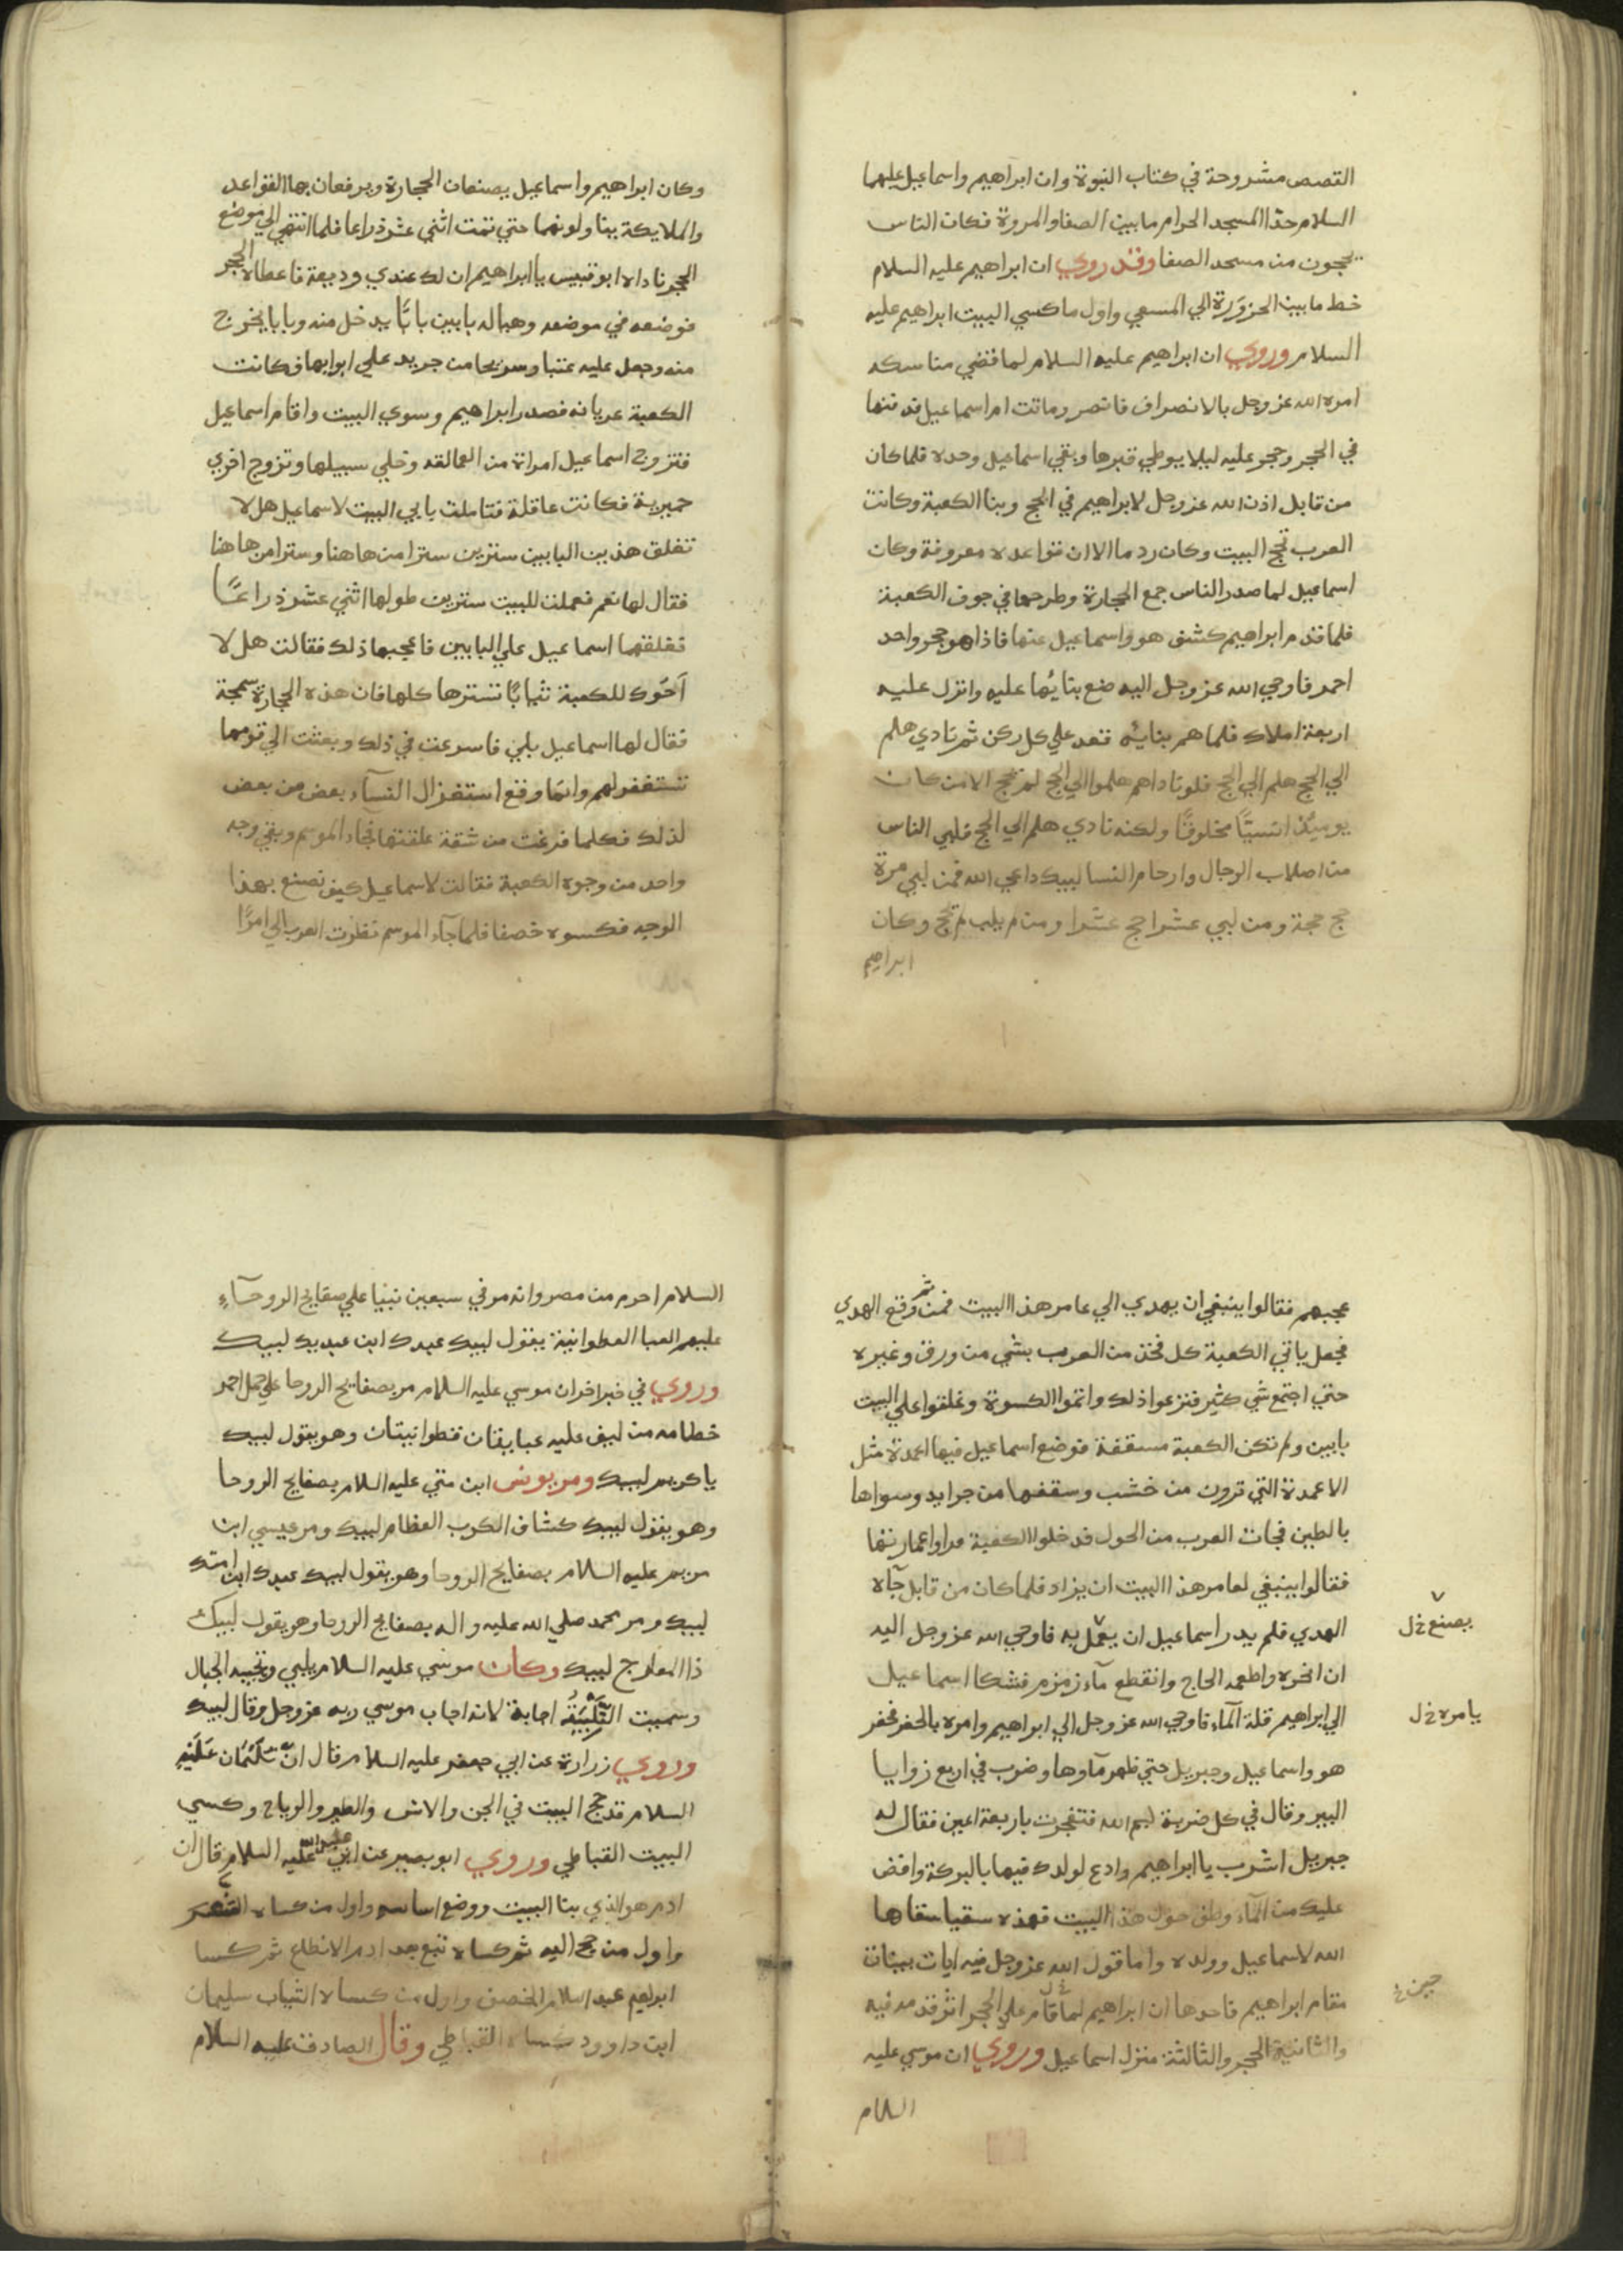 القصص مشروحة في كتاب النبوة وان ابراهيم واسماعيل عليهما
السلام حدا المسجد الحرام ما بين الصفا والمروة فكان الناس
يحجون من مسجد الصفا وقد روي ان ابراهيم عليه السلام
خط ما بين الحزورة الي المسعي واول ما كسي البيت ابراهيم عليه
السلام وروي ان ابراهيم عليه السلام لما قضي مناسكه
امره الله عز وجل بالانصراف فانصرر وماتت ام اسماعيل فدفنها
في الحجر وحجر عليه ليلا يوطي قبرها وبقي اسماعيل وحده فلما كان
من قابل اذن الله عز وجل لابراهيم في الحج وبنا الكعبة وكانت
العرب تحج البيت وكان ردما الا ان قواعده معروفة وكان
اسماعيل لما صدر الناس جمع الحجارة وطرحها في جوف الكعبة
فلما قدم ابراهيم كشف هو واسماعيل عنها فاذا هو حجر واحد
احمر فاوحي الله عز وجل اليه ضع بنايها عليه وانزل عليه
اربعة املاك فلما هم بنايه قعد علي كل ركن ثم نادي هلم
الي الحج هلم الي الحج فلو ناداهم هلموا الي الحج لم يحج الا من كان
يوميذ انسيًّا مخلوقًا ولكنه نادي هلم الي الحج فلبي الناس
من اصلاب الرجال وارحام النسا لبيك داعي الله فمن لبي مرة
حج حجة ومن لبي عشرا حج عشرا ومن لم يلب لم يحج وكان
ابراهيم
وكان ابراهيم واسماعيل يصنعان الحجارة ويرفعان بها القواعد
والملايكة يناولونهما حتي تمت اثني عشر ذراعا فلما انتهي الي موضع
الحجر ناداه ابو قبيس يا ابراهيم ان لك عندي وديعة فاعطاه الحجر
فوضعه في موضعه وهيا له بابين بابًا يدخل منه وبابا يخرج
منه وجعل عليه عتبا وسريحا من جريد علي ابوابها فكانت
الكعبة عريانه فصدر ابراهيم وسوي البيت واقام اسماعيل
فتزوج اسماعيل امراة من العمالقه وخلي سبيلها وتزوج اخري
حميرية فكانت عاقلة فتاملت بابي البيت لاسماعيل هل لا
تغلق هذين البابين سترين سترا من هاهنا وسترا من هاهنا
فقال لها نعم فعملت للبيت سترين طولها اثني عشر ذراعًا
فعلقهما اسماعيل علي البابين فاعجبها ذلك فقالت هل لا
احوك للكعبة ثيابًا تسترها كلها فان هذه الحجارة سمجة
فقال لها اسماعيل بلي فاسرعت في ذلك وبعثت الي قومها
تستغفر لهم وانما وقع استغزال النساء بعض من بعض
لذلك فكلما فرغت من شقة علقتها فجاء الموسم وبقي وجه
واحد من وجوه الكعبة فقالت لاسماعيل كيف نصنع بهذا
الوجه فكسوه خصفا فلما جآء الموسم نظرت العرب الي امرًا
عجبهم فقالوا ينبغي ان يهدي الي عامر هذا البيت فمن ثم وقع الهدي
فجعل ياتي الكعبة كل فخذ من العرب بشي من ورق وغيره
حتي اجتمع شي كثير فنزعوا ذلك واتموا الكسوة وعلقوا علي البيت
بابين ولم تكن الكعبة مسقفة فوضع اسماعيل فيها اعمدة مثل
الاعمدة التي ترون من خشب وسقفها من جرايد وسواها
بالطين فجات العرب من الحول فدخلوا الكعبة فراوا عمارتها
فقالوا ينبغي لعامر هذا البيت ان يزاد فلما كان من قابل جآه
الهدي فلم يدر اسماعيل ان يعمل به فاوحي الله عز وجل اليه
يصنع خ ل
ان انحره واطعمه الحاج وانقطع مآء زمزم فشكا اسماعيل
الي ابراهيم قلة المآء فاوحي الله عز وجل الي ابراهيم وامره بالحفر فحفر
يامره خ ل
هو واسماعيل وجبريل حتي ظهر مآوها وضرب في اربع زوايا
البير وقال في كل ضربة بسم الله فتفجرت باربعة اعين فقال له
جبريل اشرب يا ابراهيم وادع لولدك فيها بالبركة وافض
عليك من المآء وطف حول هذا البيت فهذه سقيا سقاها
الله لاسماعيل وولده واما قول الله عز وجل فيه ايات بينات
مقام ابراهيم فاحدها ان ابراهيم لما قام علي الحجر اثر قدمه فيه
حين خ
والثانية الحجر والثالثة منزل اسماعيل وروي ان موسي عليه
السلام
السلام احرم من مصر وانه مر في سبعين نبيا علي صفايح الروحآء
عليهم العبا القطوانية يقول لبيك عبدك ابن عبديك لبيك
وروي في خبر اخر ان موسي عليه السلام مر بصفايح الروحا علي جمل احمر
خطامه من ليف عليه عبايتان قطوانيتان وهو يقول لبيك
يا كريم لبيك ومر يونس ابن متي عليه السلام بصفايح الروحا
وهو يقول لبيك كشاف الكرب العظام لبيك ومر عيسي ابن
مريم عليه السلام بصفايح الروحا وهو يقول لبيك عبدك ابن امتك
لبيك ومر محمد صلي الله عليه واله بصفايح الروحا وهو يقول لبيك
ذا المعارج لبيك وكان موسي عليه السلام يلبي وتجيبه الجبال
وسميت التلبية اجابة لانه اجاب موسي ربه عز وجل وقال لبيك
وروي زرارة عن ابي جعفر عليه السلام قال ان سليمان عليه
السلام قد حج البيت في الجن والانس والطير والرياح وكسي
البيت القباطي وروي ابو بصير عن ابي عبد الله عليه السلام قال ان
ادم هو الذي بنا البيت ووضع اساسه واول من كساه الشعر
واول من حج اليه ثم كساه تبع بعد ادم الانطاع ثم كسا
ابراهيم عليه السلام الخصف واول من كساه الثياب سليمان
ابن داوود كساه القباطي وقال الصادق عليه السلام